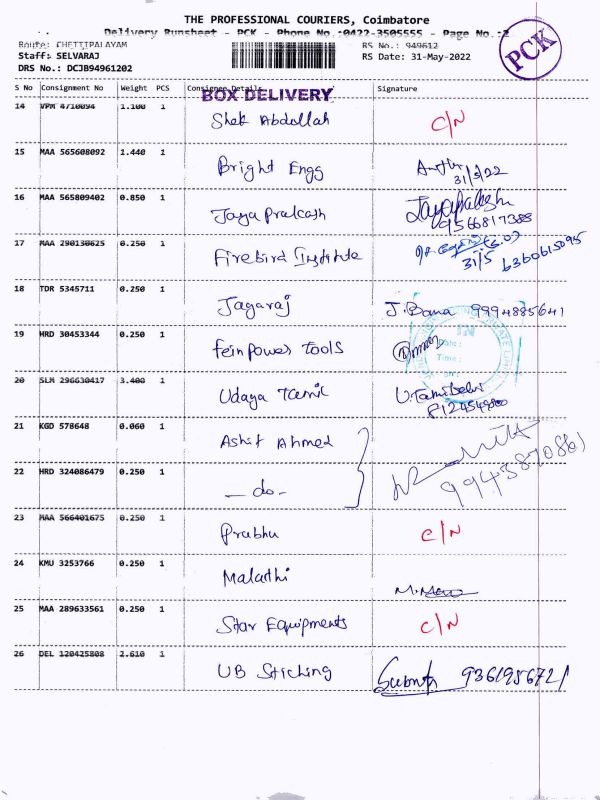 THE PROFESSIONAL COURIERS, Coimbatore
Delivery Runsheet - PCK - Phone No.:0422-3505555 - Page No.:2
PCK
Route: CHETTIPALAYAM
RS No.: 949612
Staff: SELVARAJ
RS Date: 31-May-2022
DRS No.: DCJB94961202
S No Consignment No Weight PCS Consignee Details Signature
BOX DELIVERY
14 VPM 4710094 1.100 1 Shek Abdollah C/N
15 MAA 565608092 1.440 1 Bright Engg
31/5/22
16 MAA 565809402 0.850 1 Jaya Prakash
9566817388
17 MAA 290130625 0.250 1 Firebird Institute
31/5 6360615095
18 TDR 5345711 0.250 1 Jagaraj J. Bama 9994885641
19 HRD 30453344 0.250 1 Feinpower Tools
IN
Date:
Time:
20 SLM 296630417 3.400 1 Udaya Tamil U. Tamilselvi
21 KGD 578648 0.060 1 Ashif Ahmed
22 HRD 324086479 0.250 1 — do -
23 MAA 566401675 0.250 1 Prabhu C/N
24 KMU 3253766 0.250 1 Malathi
25 MAA 289633561 0.250 1 Star Equipments C/N
26 DEL 120425808 2.610 1 UB Stiching 9361956721